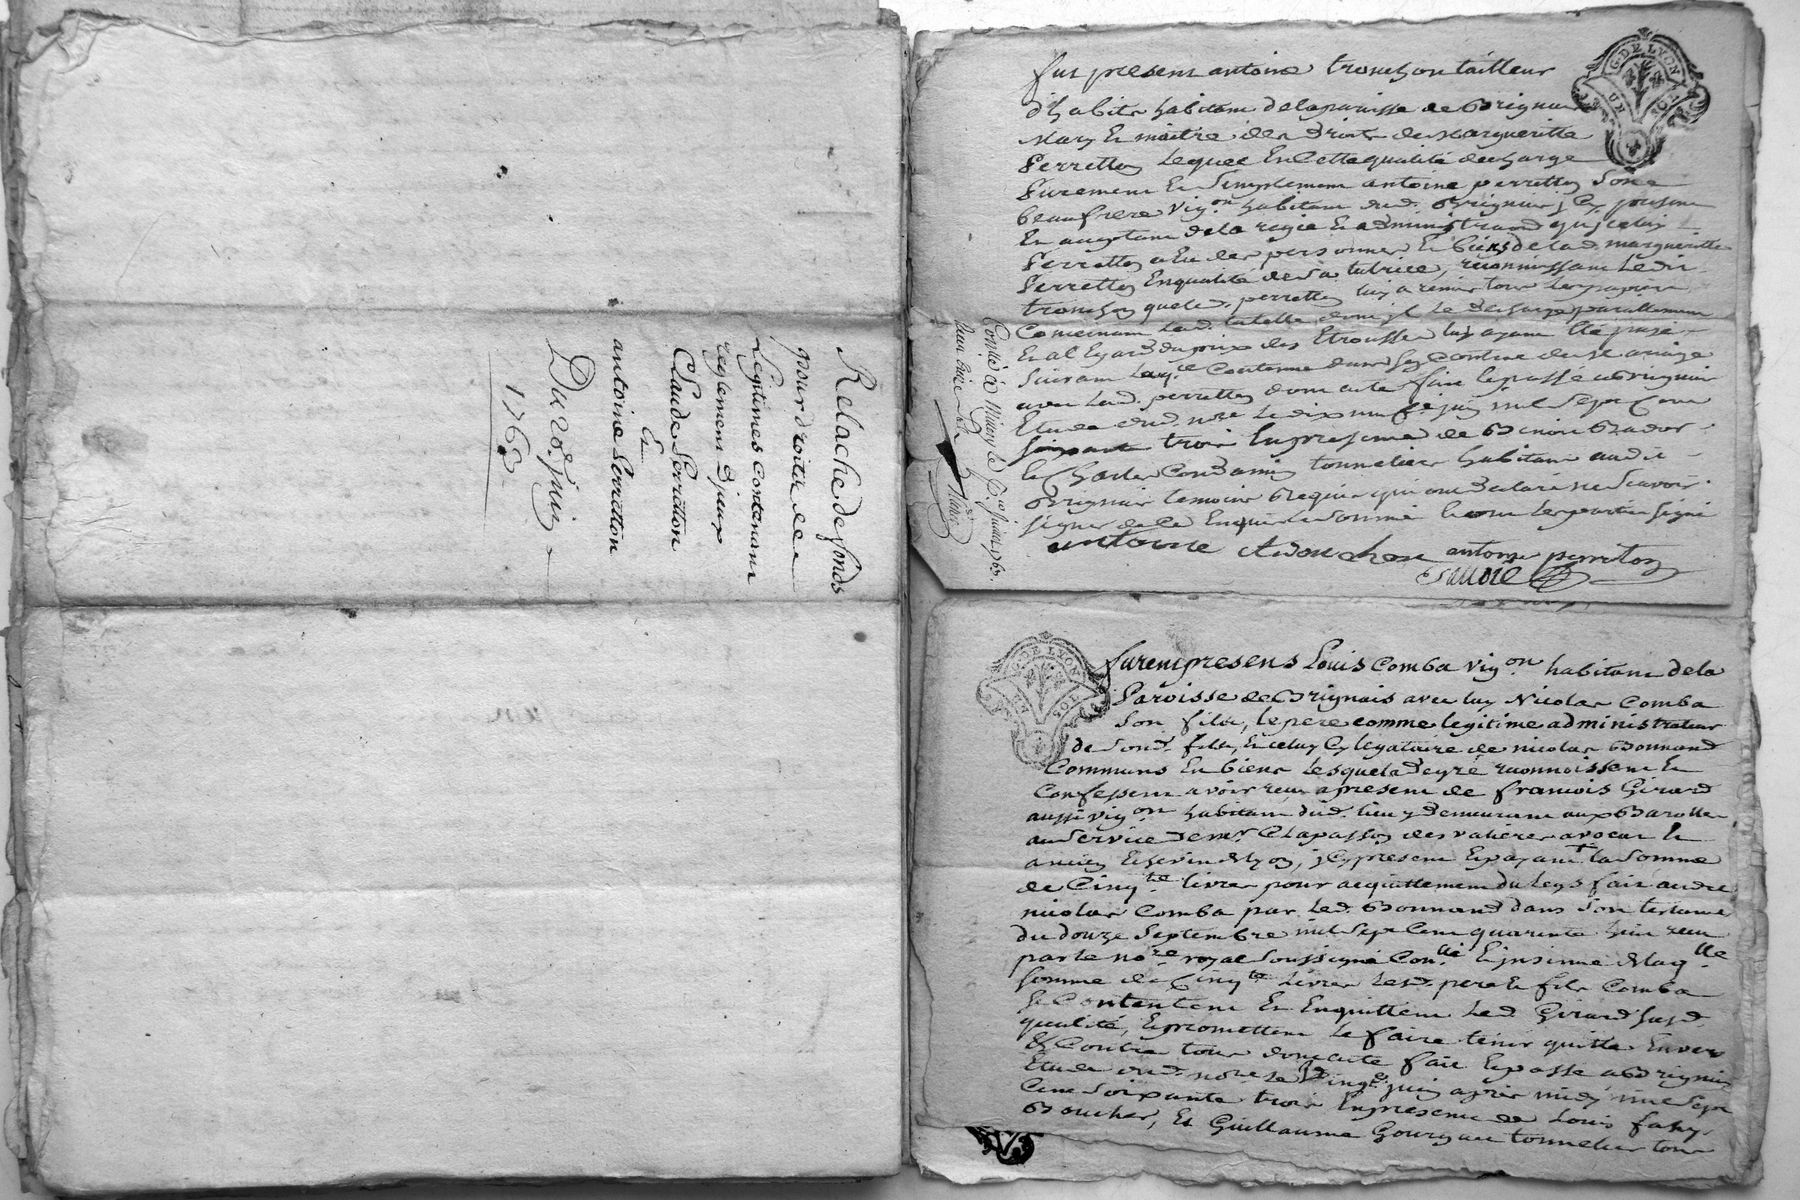 Relache de fonds
pour droits de
Legitimes contenant
reglement Djeux
Claude Perretton
Et
antoine Perretton
Du 20e Juin
1763
G. DE LYON
UN SOL
fut present antoine tronchon tailleur
d'habits habitant de la paroisse de Brignais
Mary Et maitre des Droits de Margueritte
Perretton Lequel En cette qualité decharge
Purement Et Simplement antoine perretton Son
beaufrere vig.on habitant dud. Brignais jcy present
Et acceptant de la regie Et administration qu'jceluy
Perretton a Eu des personnes Et biens de lad. margueritte
Perretton En qualité de Sa tutrice, reconnoissant Ledit
tronchon que led. perretton luy a remis tous les papiers
Concernant Lad. tutelle dont jl Le decharge pareillement
Et a l'Egard du prix des trousses luy ayant Eté payé
Suivant La
avec Lad. perretton dont acte fait Et passé a Brignais
Etude dud. no.re Le dix neuf juin mil Sept Cent
Soixante trois En presence de Benoit Bador
Et Charles Condamin tonnelier habitant audit
Brignais temoins Requis qui ont declaré ne Scavoir
signer de ce Enquis Et Sommé comme les parties signé
antoine tronchon antoine perreton
Controllé à Millery le Juillet 1763.
G. DE LYON
UN SOL
furent presens Louis Comba vig.on habitant de la
Paroisse de Brignais avec luy Nicolas Comba
Son fils, le pere comme legitime administrateur
de Sond. fils, Et celuy Cy legataire de nicolas Bonnand
Communs En biens Lesquels de gré reconnoissent Et
Confessent avoir reçu a present de francois Girard
aussi vig.on habitant dud. lieu y demeurant aux Barolles
au Service de m.r Clapasson des valieres avocat Et
ancien Echevin de Lyon, jcy present Et payant la Somme
de Cinq.te livres pour acquittement du legs fait aud.
nicolas Comba par led. Bonnand dans Son testament
du douze Septembre mil Sept Cent quarante huit reçu
par le no.re royal Soussigné Con.llé Et jnsinué de laq.lle
Somme de Cinq.te Livres Lesd. pere Et fils Comba
Se Contentent Et En quittent Led. Girard Susd.
qualité, Et promettent Le faire tenir quitte Envers
Et Contre tous dont acte fait Et passé a Brignais
Etude dud. no.re Le Vingt juin après midy mil Sept
Cent Soixante trois En presence de Louis fahy
Boucher, Et Guillaume Gourgeau tonnelier tous